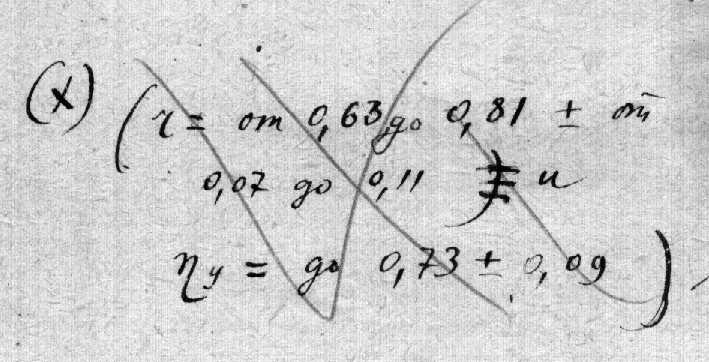 (x) (r = от 0,63 до 0,81 ± от
0,07 до 0,11 ) и
ηy = до 0,73 ± 0,09),